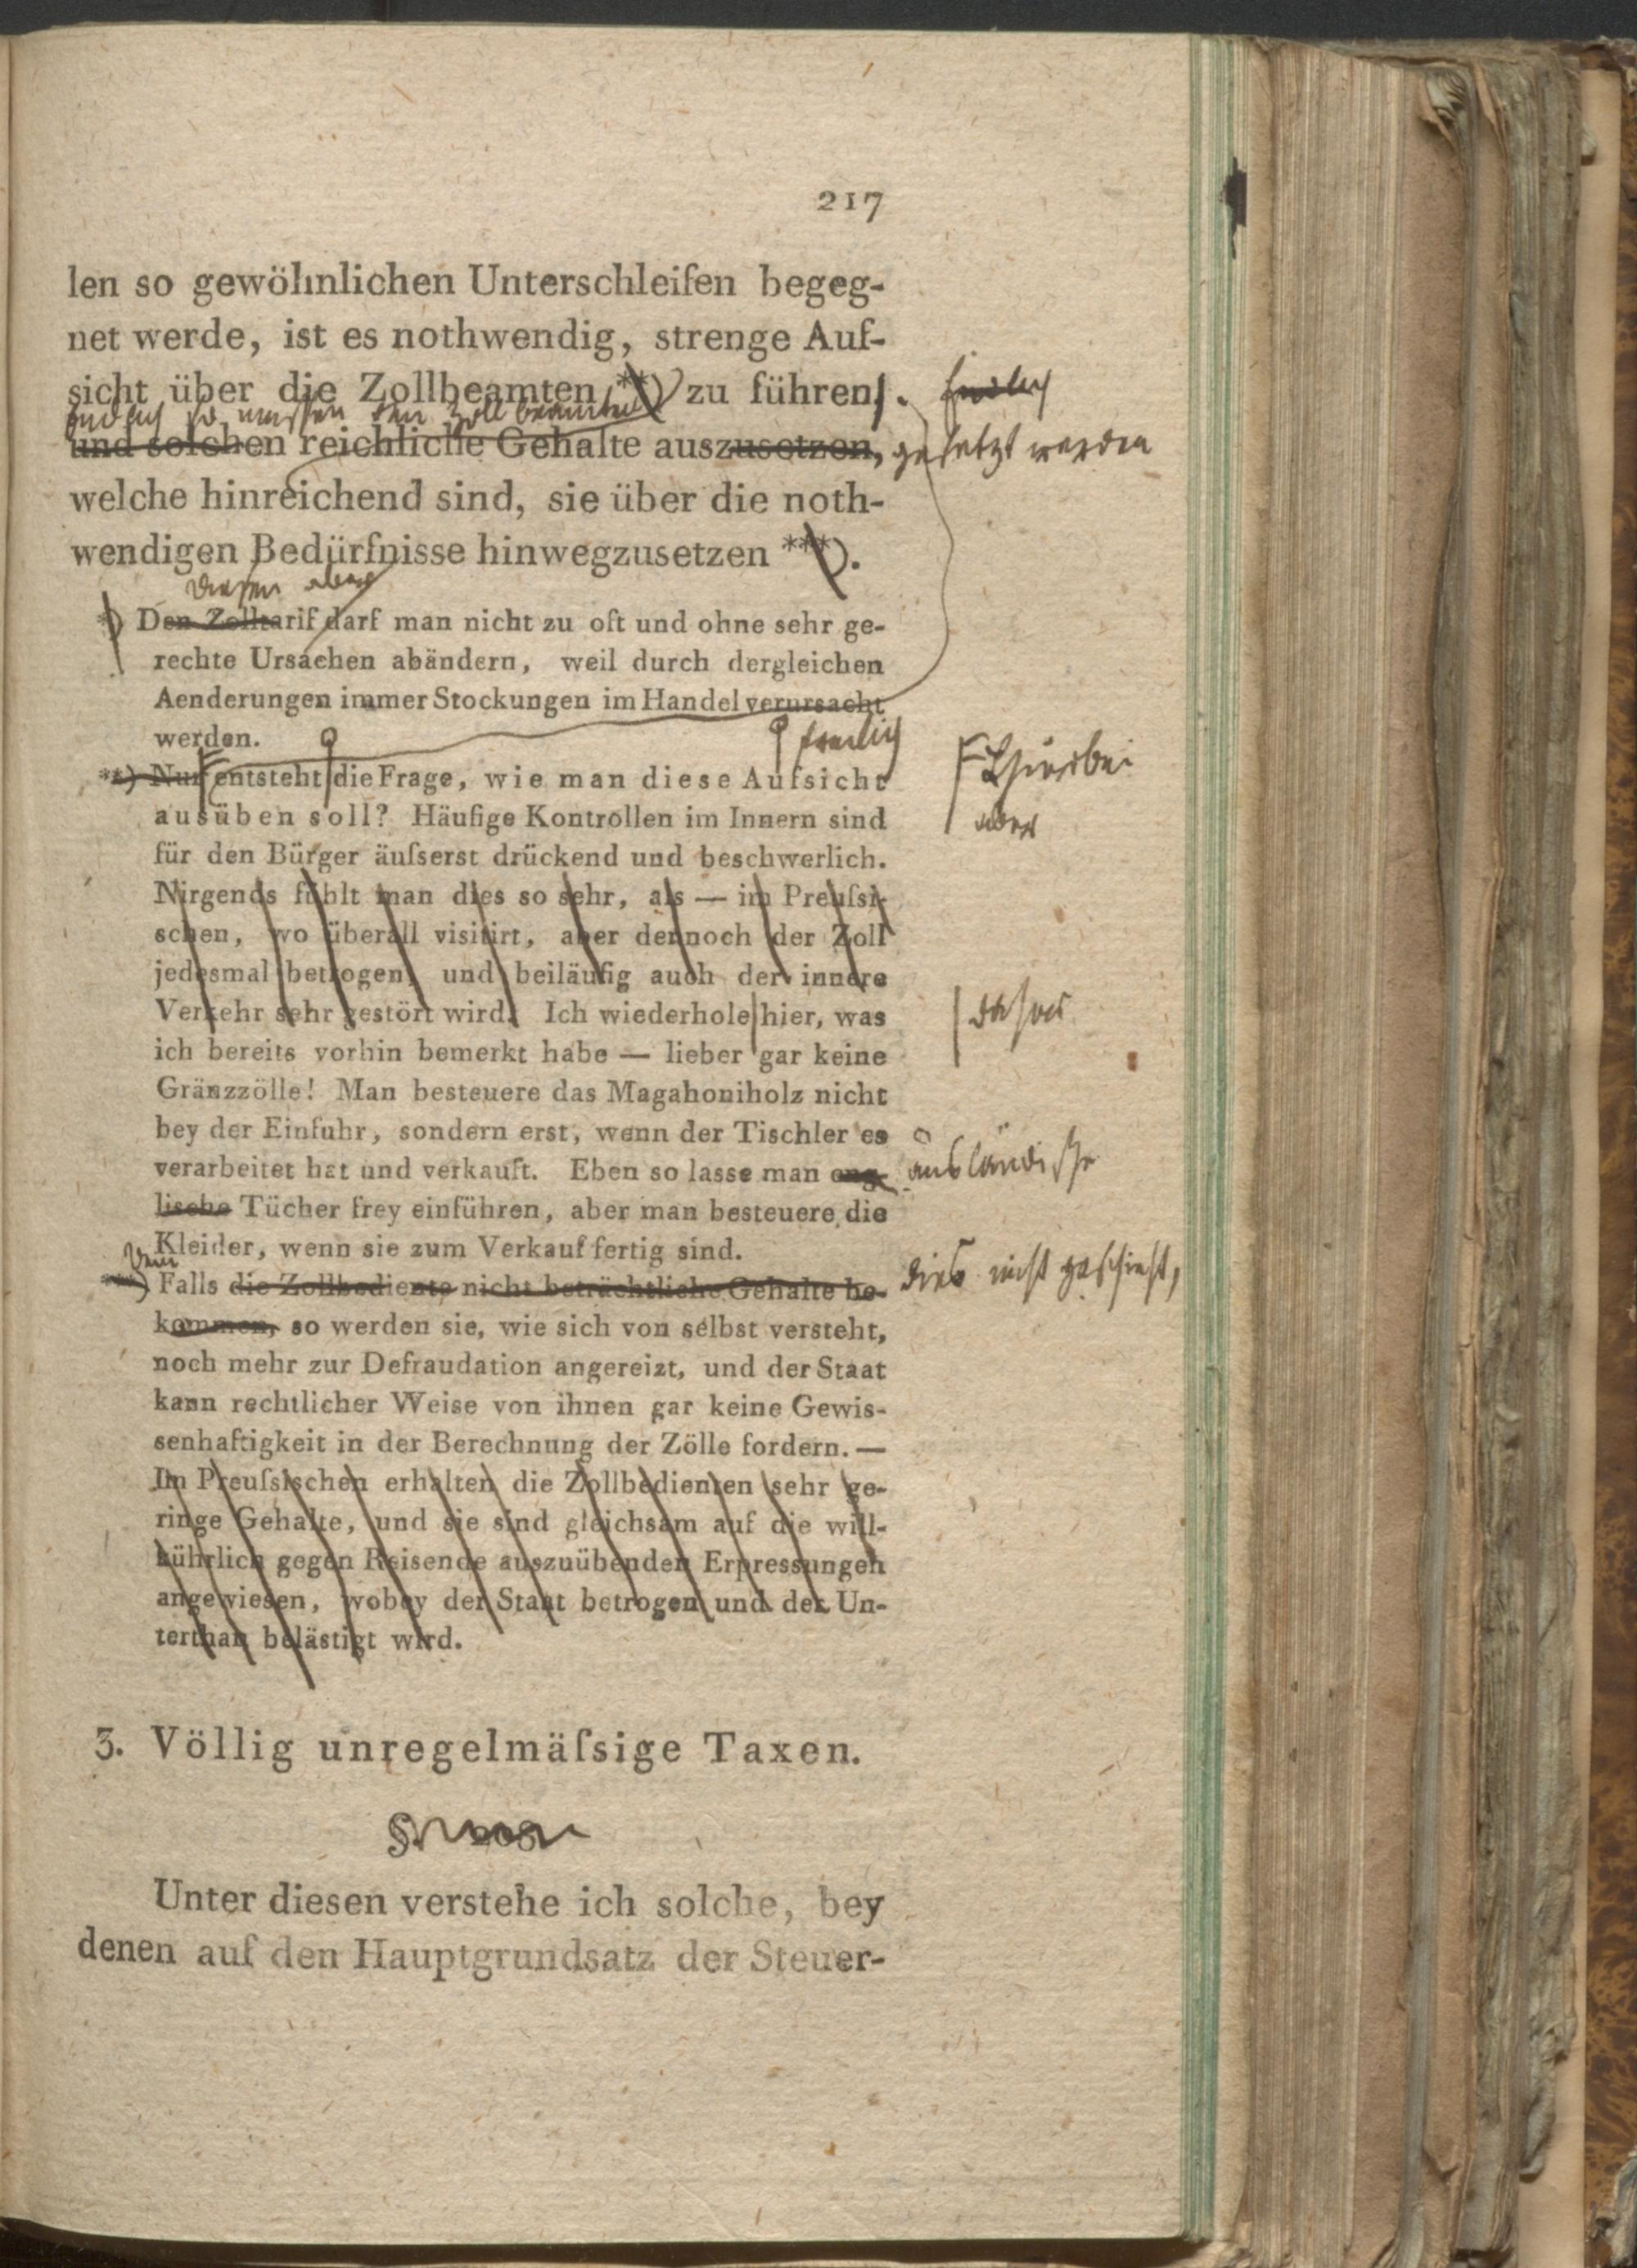 217
len so gewöhnlichen Unterschleifen begeg-
net werde, ist es nothwendig, strenge Auf-
sicht über die Zollbeamten **) zu führen. Endlich
endlich so müssen den Zollbeamten
und solchen reichliche Gehalte auszusetzen, gesetzt werden
welche hinreichend sind, sie über die noth-
wendigen Bedürfnisse hinwegzusetzen ***).
Diesen aber
*) Den Zolltarif darf man nicht zu oft und ohne sehr ge-
rechte Ursachen abändern, weil durch dergleichen
Aenderungen immer Stockungen im Handel verursacht
werden.
freilich
**) Nur entsteht die Frage, wie man diese Aufsicht Hierbei
ausüben soll? Häufige Kontrollen im Innern sind aber
für den Bürger äuſserst drückend und beschwerlich.
Nirgends fühlt man dies so sehr, als — im Preuſsi-
schen, wo überall visitirt, aber dennoch der Zoll
jedesmal betrogen, und beiläufig auch der innere
Verkehr sehr gestört wird. Ich wiederhole hier, was daher
ich bereits vorhin bemerkt habe — lieber gar keine
Gränzzölle! Man besteuere das Magahoniholz nicht
bey der Einfuhr, sondern erst, wenn der Tischler es
verarbeitet hat und verkauft. Eben so lasse man eng- ausländische
lische Tücher frey einführen, aber man besteuere die
Kleider, wenn sie zum Verkauf fertig sind.
Denn
***) Falls die Zollbediente nicht beträchtliche Gehalte be- dies nicht geschieht,
kommen, so werden sie, wie sich von selbst versteht,
noch mehr zur Defraudation angereizt, und der Staat
kann rechtlicher Weise von ihnen gar keine Gewis-
senhaftigkeit in der Berechnung der Zölle fordern. —
Im Preuſsischen erhalten die Zollbedienten sehr ge-
ringe Gehalte, und sie sind gleichsam auf die will-
kührlich gegen Reisende auszuübenden Erpressungen
angewiesen, wobey der Staat betrogen und der Un-
terthan belästigt wird.
3. Völlig unregelmäſsige Taxen.
§. 208
Unter diesen verstehe ich solche, bey
denen auf den Hauptgrundsatz der Steuer-